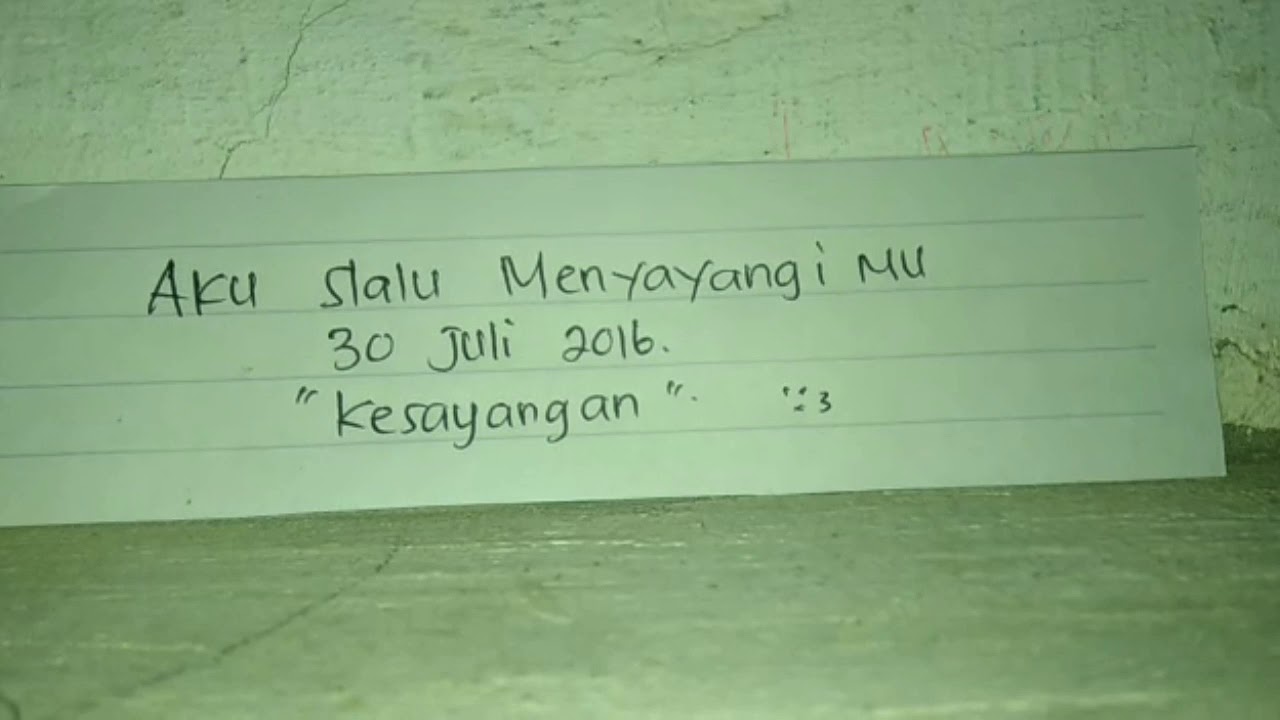 Aku slalu Menyayangi MU
30 Juli 2016.
"Kesayangan". ":3